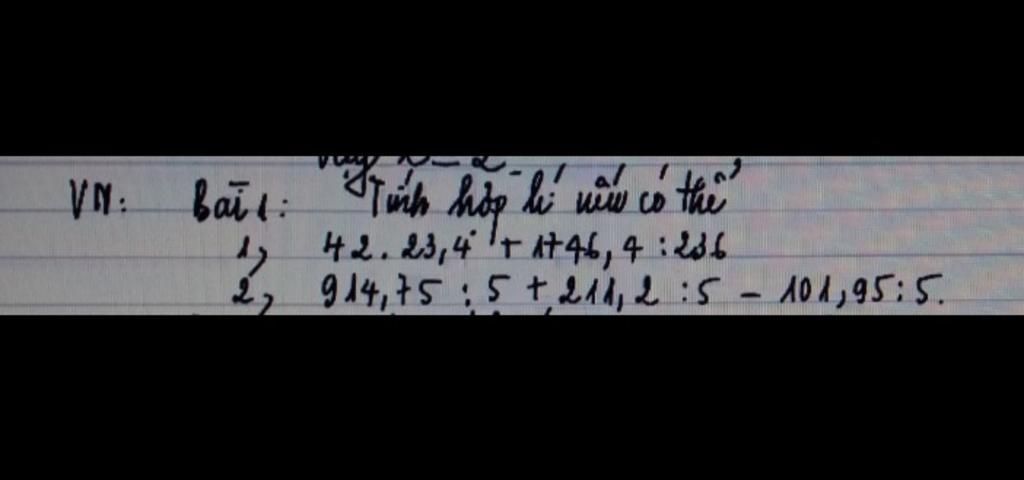 VN: Bài 1: Tính hợp lí nếu có thể
1, 42. 23,4 + 1746,4 : 236
2, 914,75 : 5 + 211,2 : 5 - 101,95 : 5.